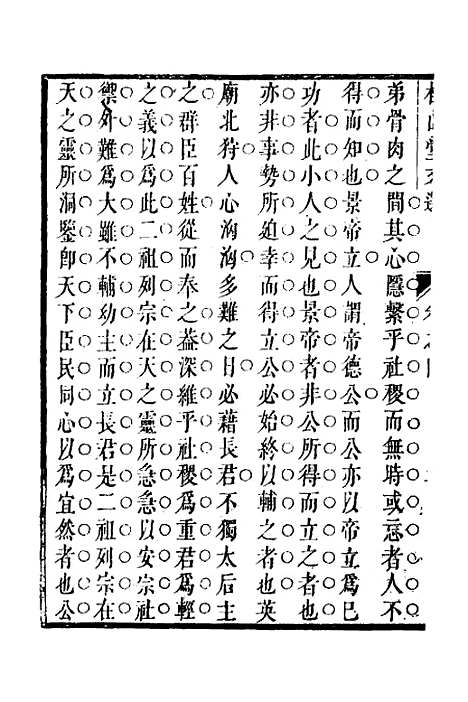 弟骨肉之間其心隱繫乎社稷而無時或忘者人不
得而知也景帝立人謂帝德公而公亦以帝立爲已
功者此小人之見也景帝者非公所得而立之者也
亦非事勢所廹幸而得立公必始終以輔之者也英
廟北狩人心洶洶多難之日必藉長君不獨太后主
之群臣百姓從而奉之葢深維乎社稷爲重君爲輕
之義以爲此二祖列宗在天之靈所急急以安宗社
禦外難爲大雖不輔幼主而立長君是二祖列宗在
天之靈所洞鑒卽天下臣民同心以爲宜然者也公